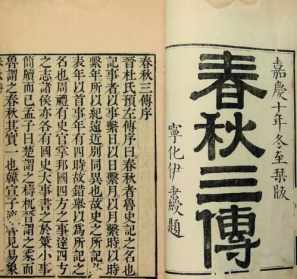 嘉慶十年冬至琹版
春秋三傳
寧化伊秉綬題
春秋三傳序
晉杜氏預左傳序曰春秋者魯史記之名也
記事者以事繫日以日繫月以月繫時以時
繫年所以紀遠近別同異也故史之所記必
表年以首事年有四時故錯舉以爲所記之
名也周禮有史官掌邦國四方之事達四方
之志諸侯亦各有國史大事書之於策小事
簡牘而已孟子曰楚謂之檮杌晉謂之乘而
魯謂之春秋其實一也韓宣子適魯見易象